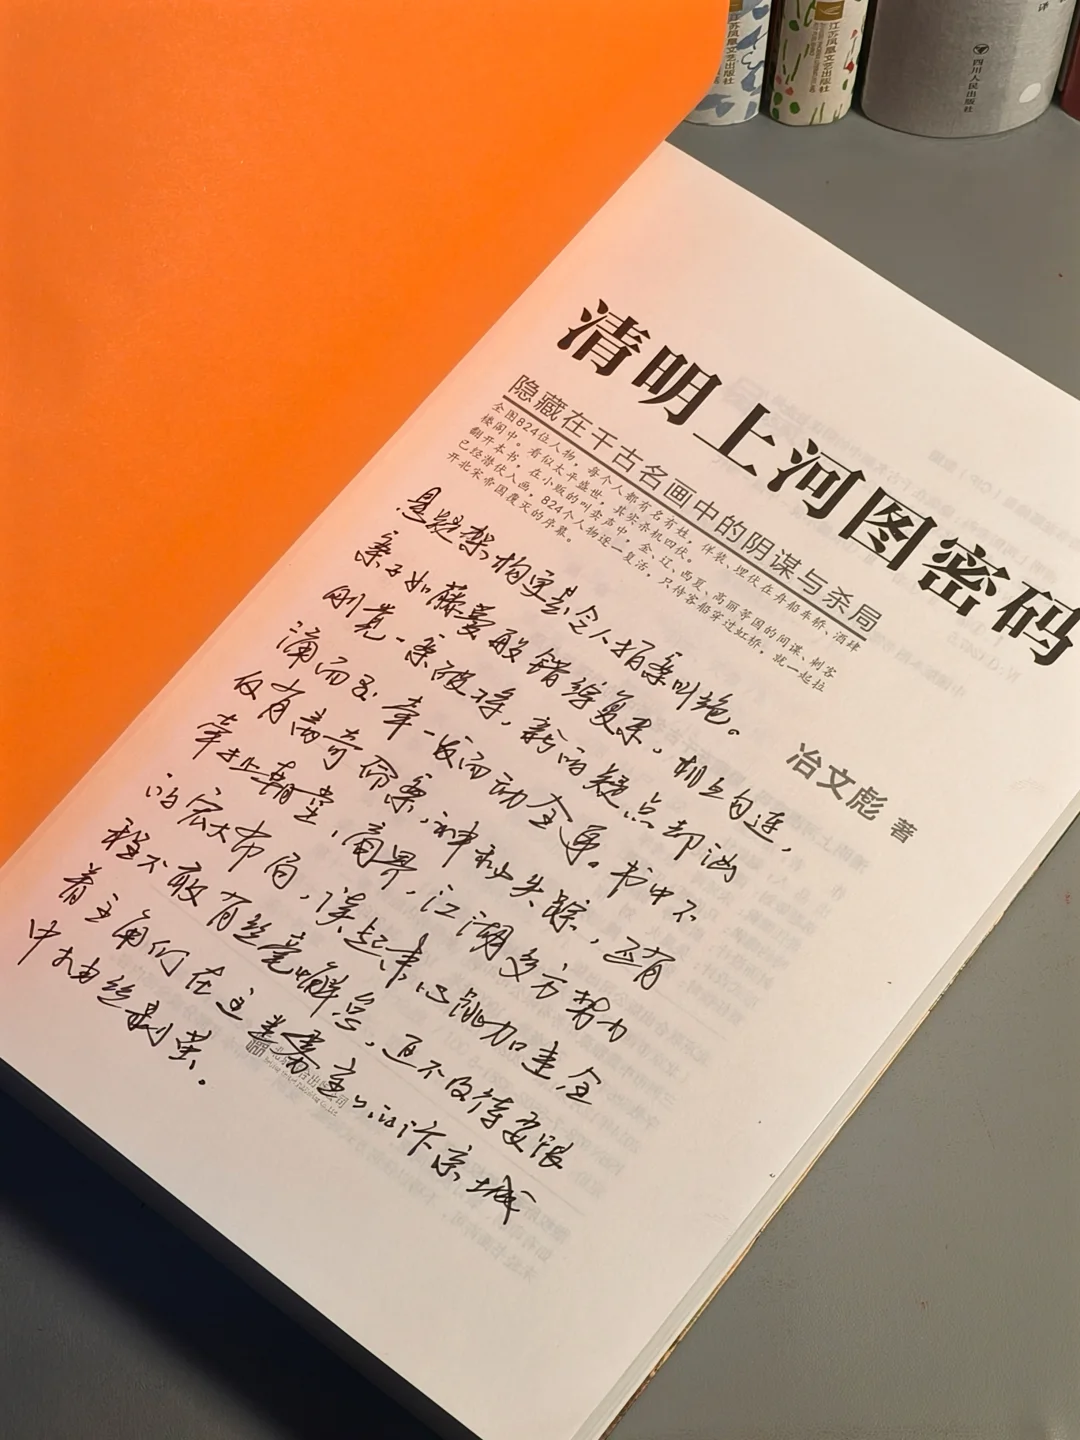 江苏凤凰文艺出版社
江苏凤凰文艺出版社
四川人民出版社
译
清明上河图密码
隐藏在千古名画中的阴谋与杀局
全图824位人物，每个人都有名有姓，佯装、埋伏在舟船车轿、酒肆
楼阁中。看似太平盛世，其实杀机四伏。
翻开本书，在小贩的叫卖声中，金、辽、西夏、高丽等国的间谍、刺客
已经潜伏入画，824个人物逐一复活，只待客船穿过虹桥，就一起拉
开北宋帝国覆灭的序幕。
冶文彪 著
悬疑架构实是令人拍案叫绝。
案子如藤蔓般错综复杂，相互勾连，
刚觉一案破译，新的疑点却汹
涌而至，牵一发而动全身。书中不
仅有离奇命案，神秘失踪，还有
牵扯朝堂，商界，江湖多方势力
的宏大布局，读起来心跳加速全
程不敢有丝毫懈怠，迫不及待要跟
着主角们在这迷雾重重的汴京城
中抽丝剥茧。